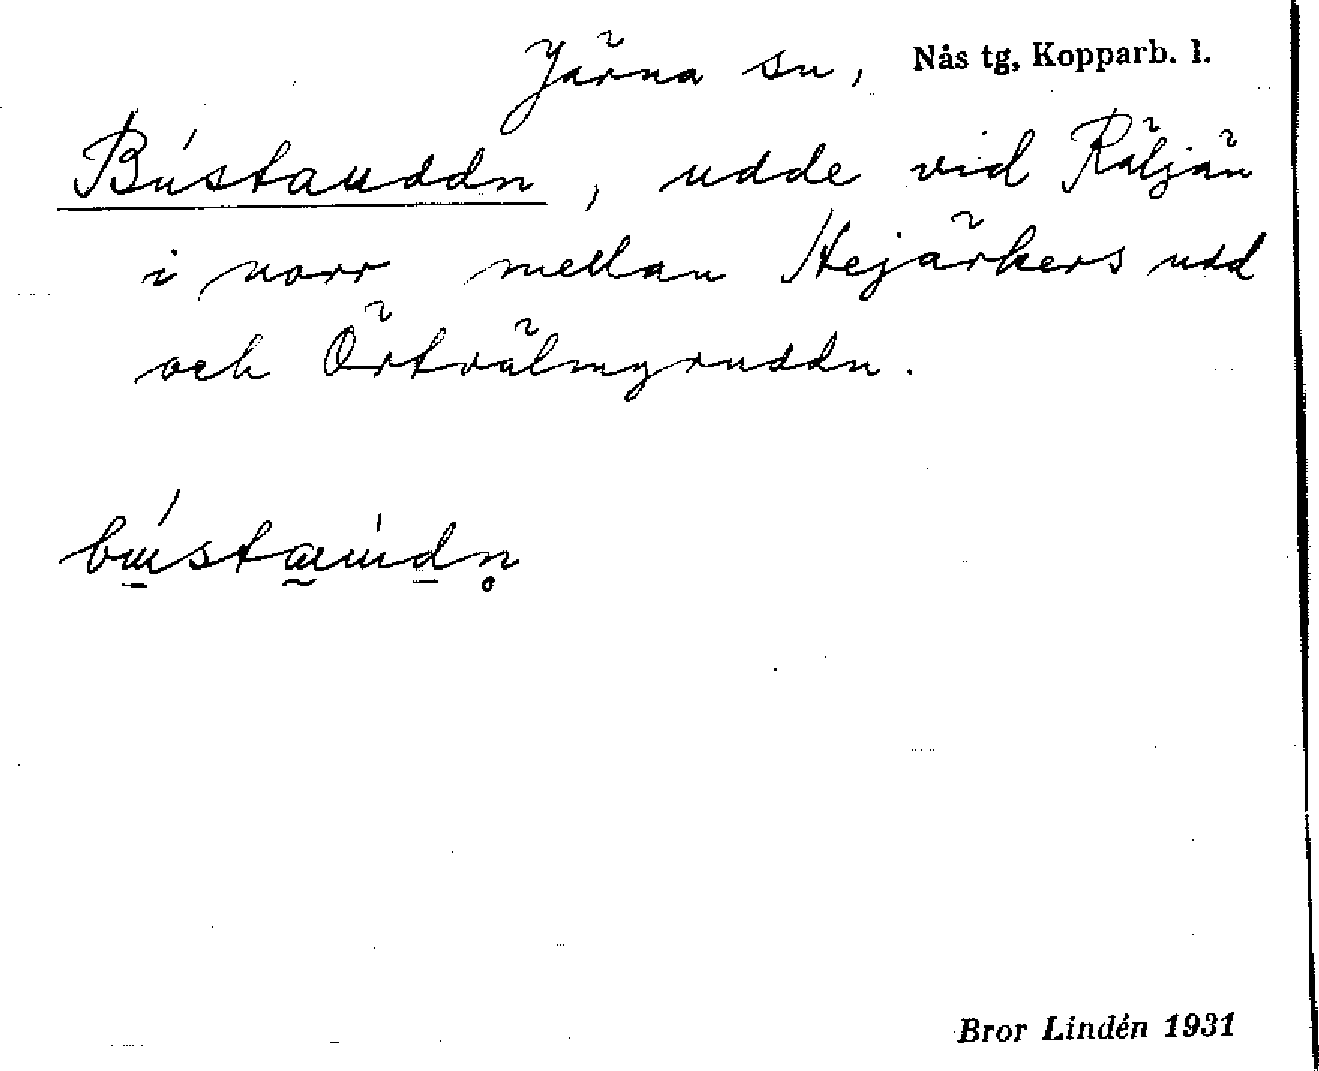 Järna sn, Nås tg, Kopparb. l.
Bústauddn, udde vid Räljän
i norr mellan Hejärkers udd
och Örtvälmyruddn.
Bror Lindén 1931